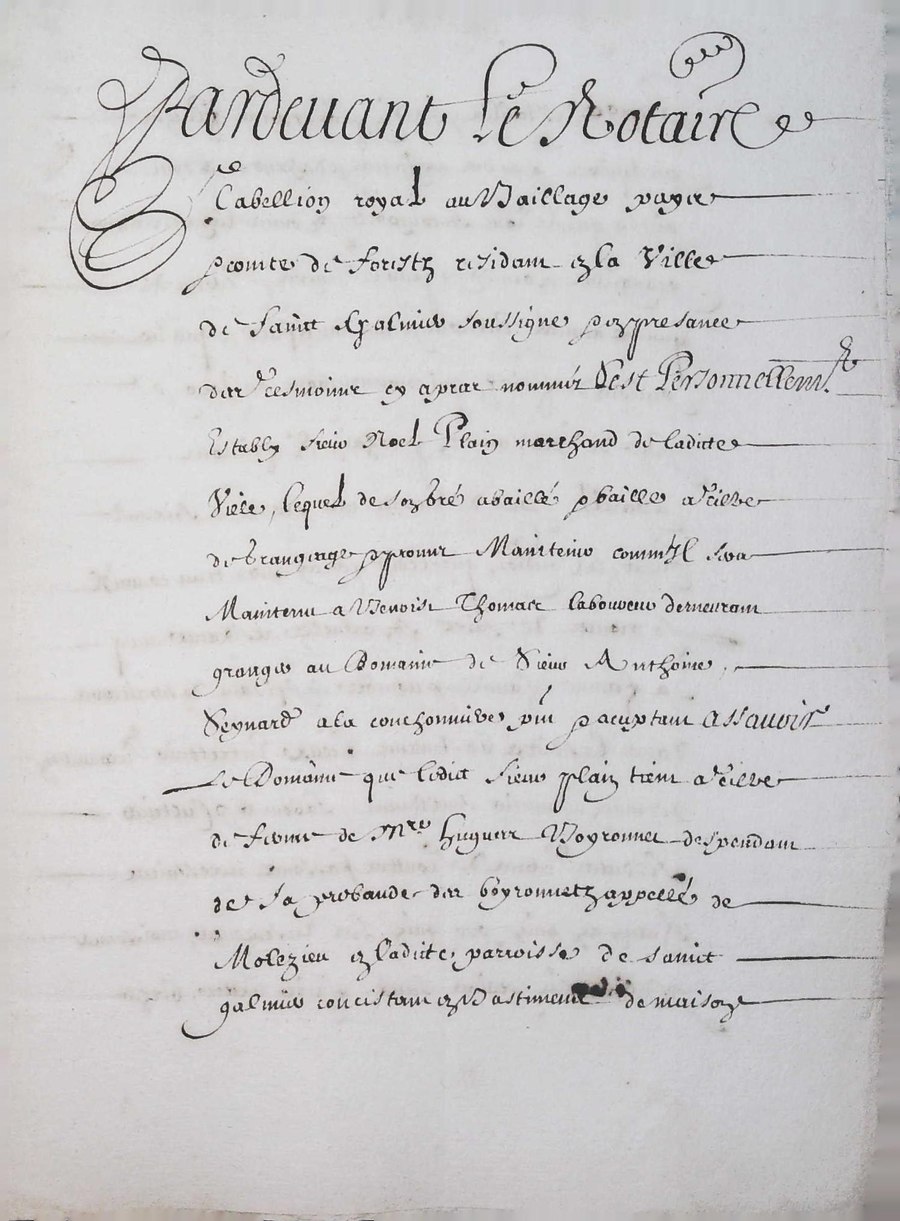 Pardevant Le Notaire
Tabellion royal au Baillage pays
& comte de forestz residant en la Ville
de sainct Galmier soussigne & en presance
des tesmoins cy apres nommez S'est Personnellemt
Estably sieur Noel Plain marchand de laditte
Ville, lequel de son gré a baillé & baille a tiltre
de grangeage & promet Maintenir comme il sera
Maintenu a Benoist Thomas laboureur demeurant
granger au Domaine de Sieur Anthoine
Reynard a la couchonniere pnt & acceptant Assavoir
Le Domaine que ledict sieur plain tient a tiltre
de ferme de Mre hugues Boyronnet despendant
de sa prebande des boyronnetz appellé de
Molezieu en ladicte parroisse de sainct
galmier concistant en Bastiment de maison